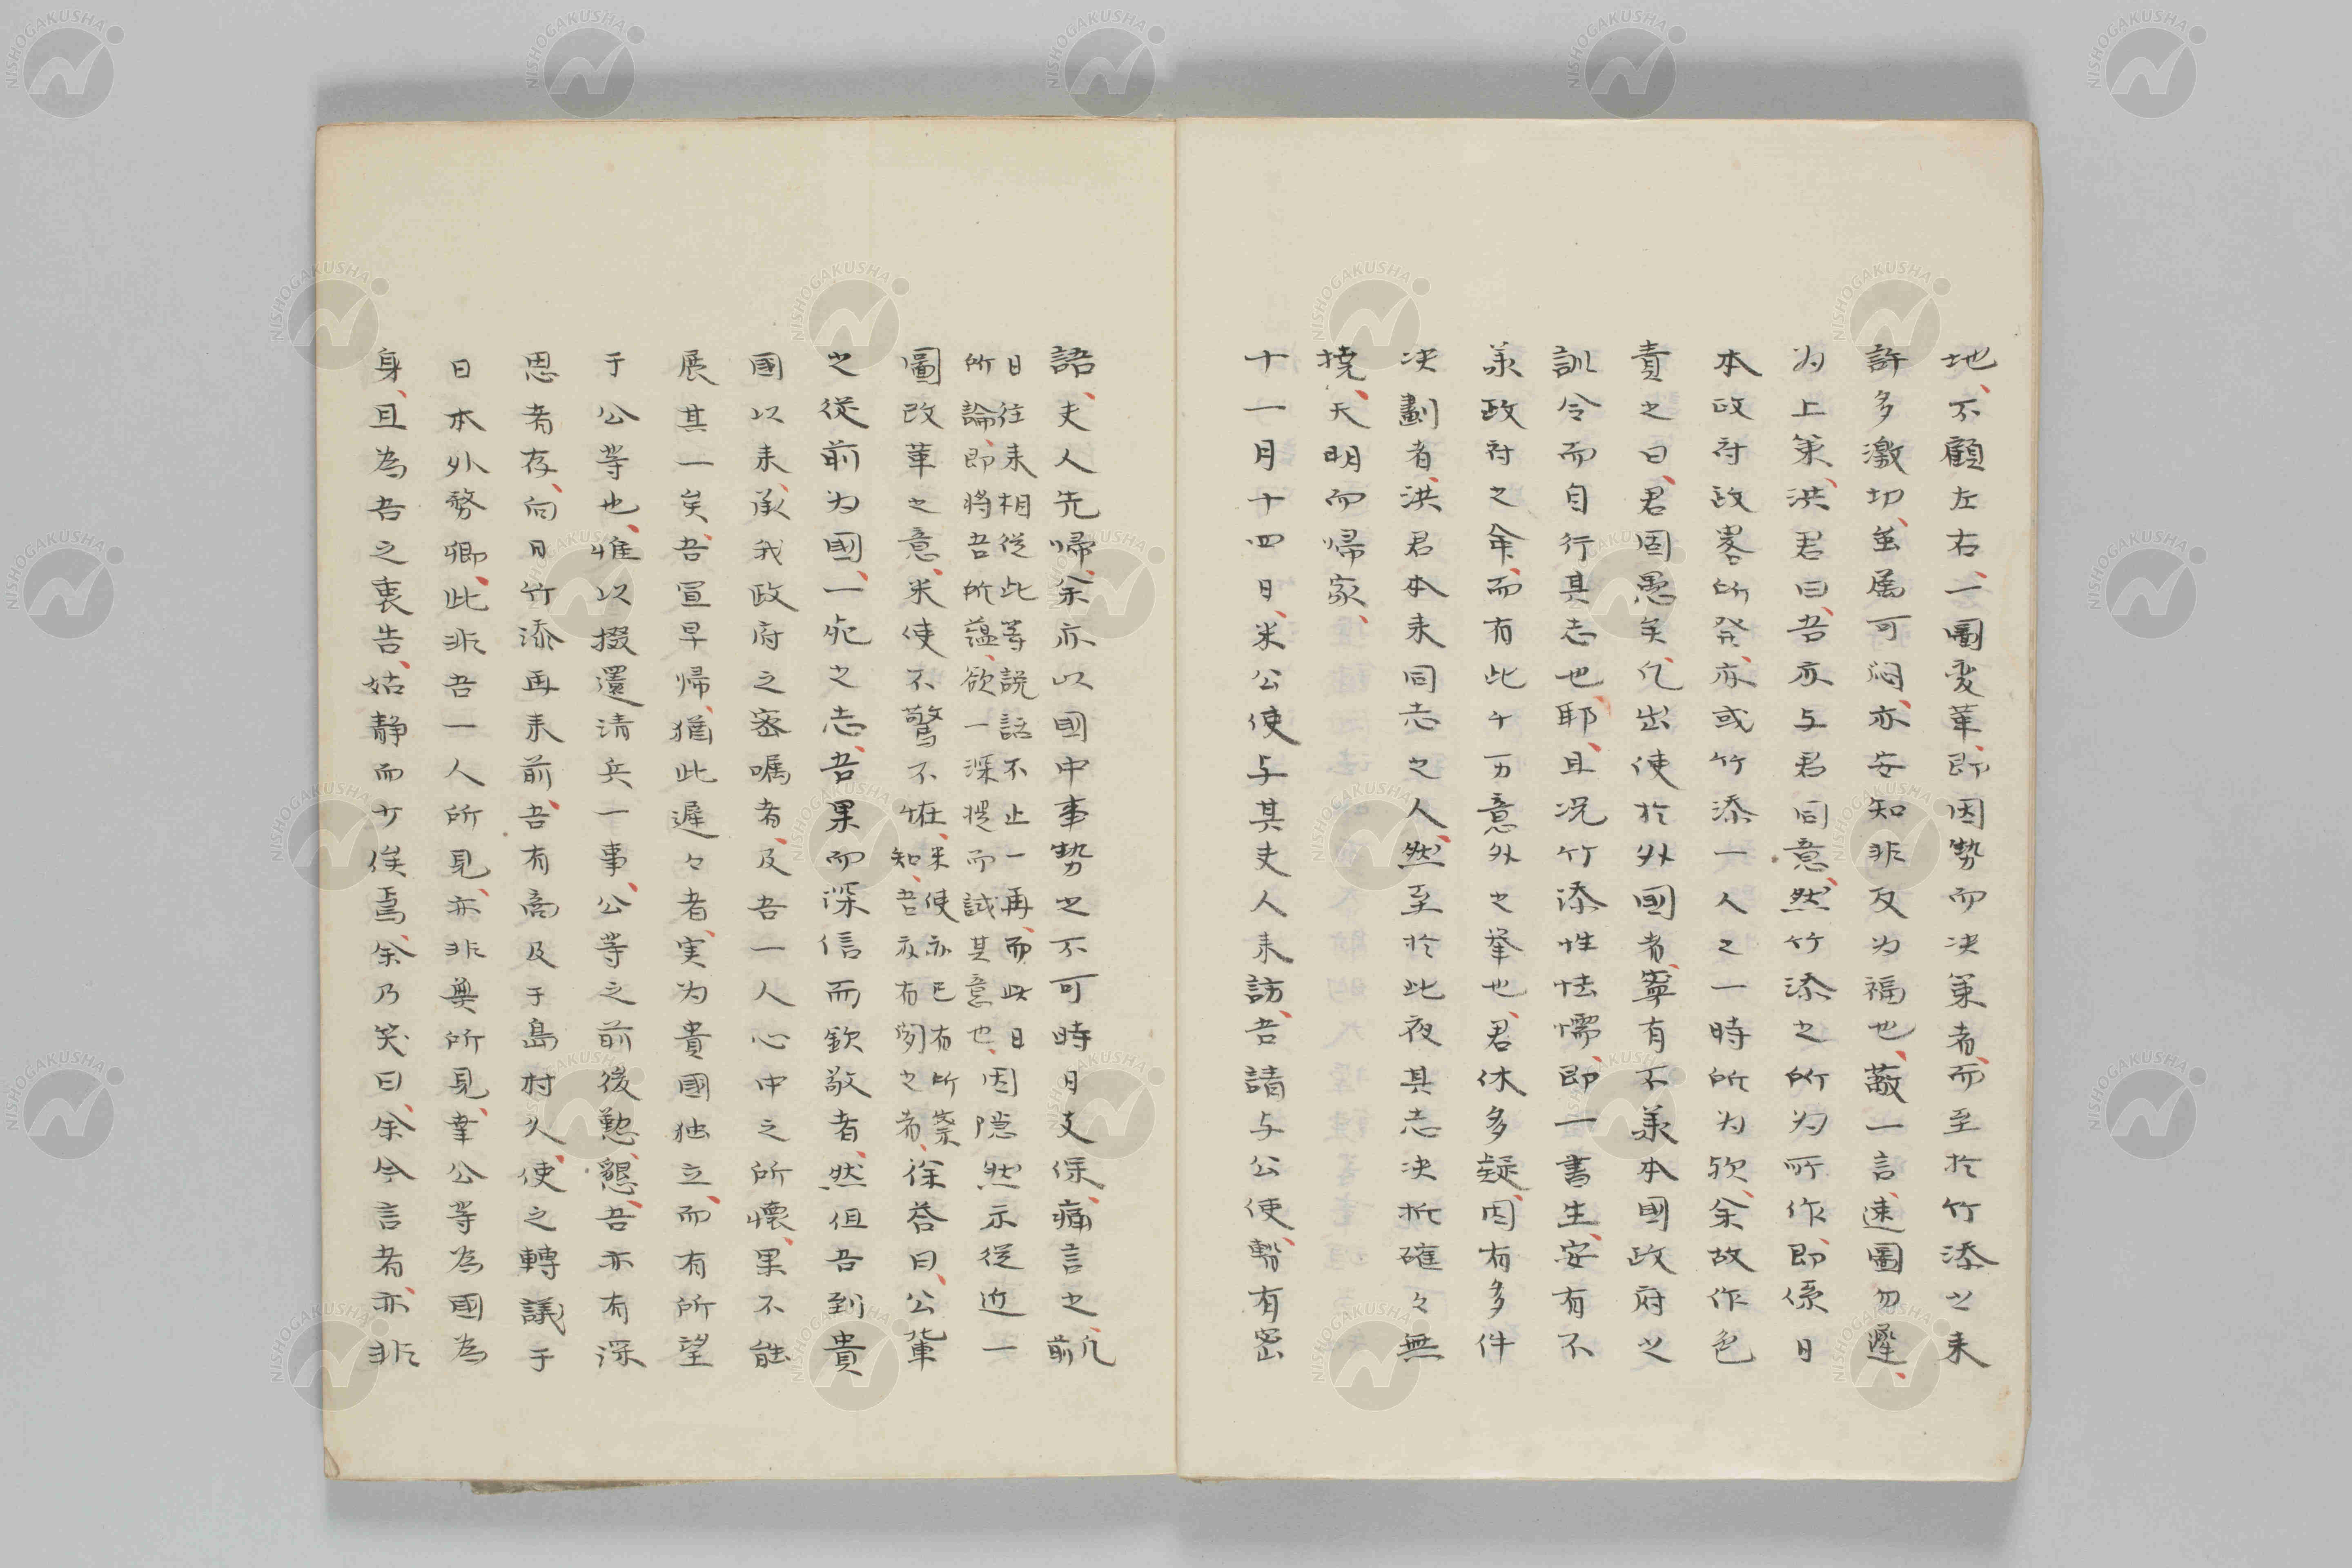 地、不顧左右、一圖変革、即因勢而决策者、而至於竹添之来
許多激切、虽属可悶、亦安知非反为福也、蔽一言、速圖勿遲、
为上策、洪君曰、吾亦与君同意、然竹添之所为所作、即係日
本政府政畧所発、亦或竹添一人之一時所为欤、余故作色
責之曰、君固愚矣、凡出使於外國者、寧有不承本國政府之
訓令而自行其志也耶、且况竹添性怯懦、即一書生、安有不
承政府之命、而有此千万意外之挙也、君休多疑、因有多件
决劃者、洪君本来同志之人、然至於此夜其志决抵確々無
撓、天明而帰家、
十一月十四日、米公使与其夫人来訪、吾請与公使、暫有密
語、夫人先帰、余亦以國中事勢之不可時日支保、痛言之、前凡
日往来相従此等説話不止一再、而此日
所論、即将吾所蕴、欲一深提而試其意也、因隠然示従近一
圖改革之意、米使不驚不怪、米使亦已有所察
知、吾亦有闵之者、徐答曰、公輩
之従前为國、一死之志、吾果而深信而欽敬者、然但吾到貴
國以来、承我政府之密嘱者、及吾一人心中之所懐、果不能
展其一矣、吾宣早帰、猶此遲々者、実为貴國独立、而有所望
于公等也、惟以掇還清兵一事、公等之前後懃懇、吾亦有深
思者存、向日竹添再来前、吾有啇及于島村久、使之轉議于
日本外務卿、此非吾一人所見、亦非無所見、幸公等為國為
身、且為吾之衷告、姑静而少俟焉、余乃笑曰、余今言者、亦非